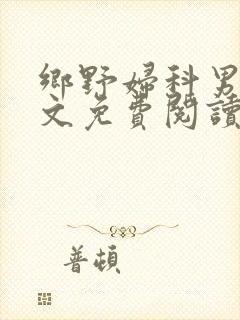 鄉野婦科男
文免費閱讀
普頓